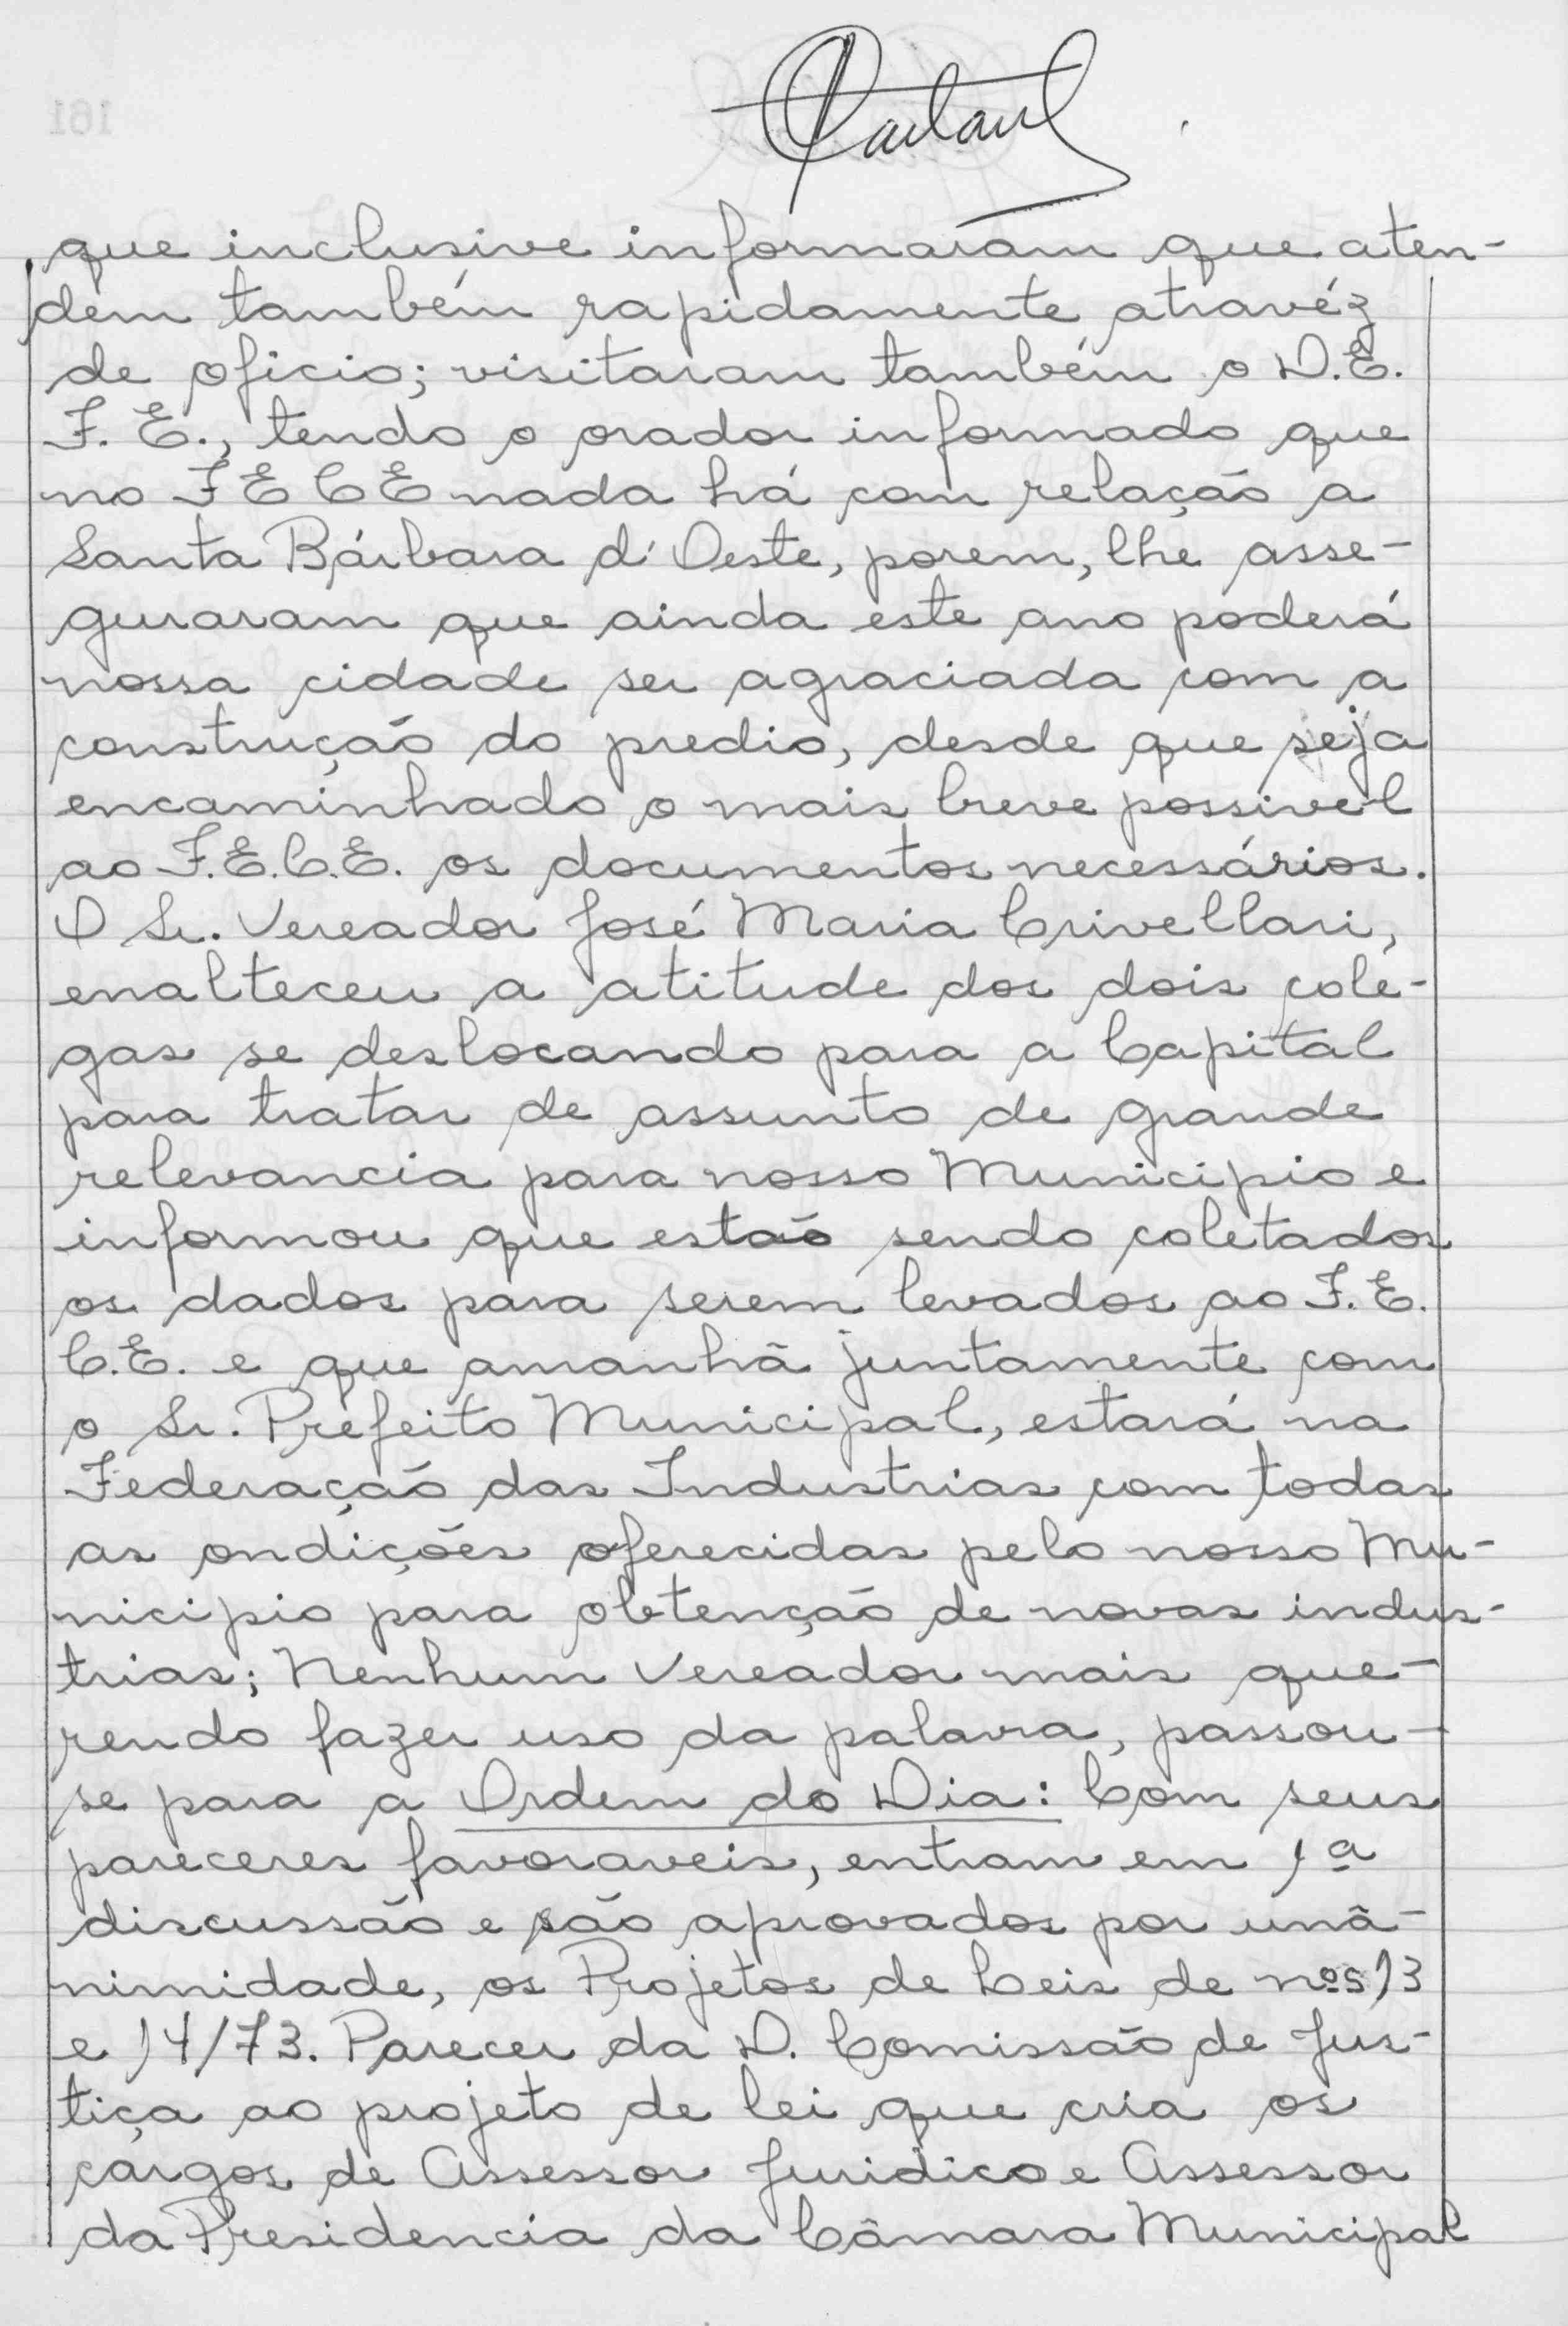 que inclusive informaram que aten-
dem também rapidamente atravéz
de oficio; visitaram também o D.E.
F.E., tendo o orador informado que
no FECE nada há com relação a
Santa Bárbara d'Oeste, porem, lhe asse-
guraram que ainda este ano poderá
nossa cidade ser agraciada com a
construção do predio, desde que seja
encaminhado o mais breve possivel
ao F.E.C.E. os documentos necessários.
O Sr. Vereador José Maria Crivellari,
enalteceu a atitude dos dois cole-
gas se deslocando para a Capital
para tratar de assunto de grande
relevancia para nosso Municipio e
informou que estão sendo coletados
os dados para serem levados ao F.E.
C.E. e que amanhã juntamente com
o Sr. Prefeito Municipal, estará na
Federação das Industrias com todas
as ondições oferecidas pelo nosso Mu-
nicipio para obtenção de novas indus-
trias; Nenhum Vereador mais que-
rendo fazer uso da palavra, passou-
se para a Ordem do Dia: Com seus
pareceres favoraveis, entram em 1ª
discussão e são aprovados por unâ-
nimidade, os Projetos de Leis de nºs 13
e 14/73. Parecer da D. Comissão de Jus-
tiça ao projeto de lei que cria os
cargos de Assessor Juridico e Assessor
da Presidencia da Câmara Municipal